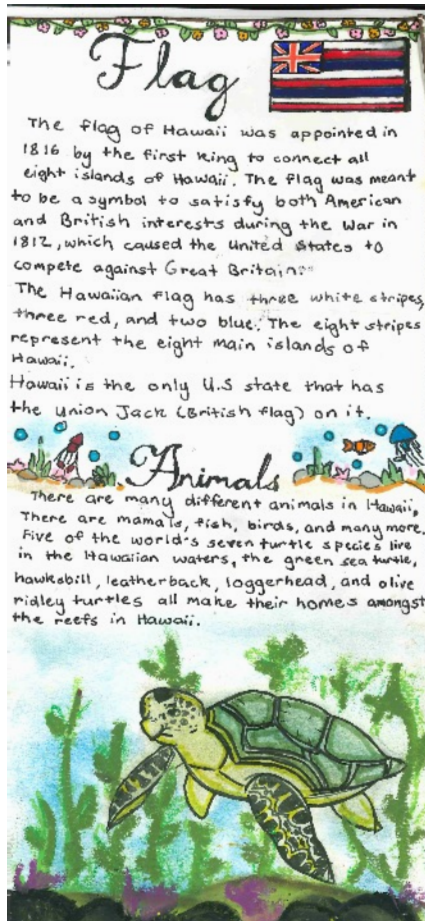 Flag
The flag of Hawaii was appointed in
1816 by the first king to connect all
eight islands of Hawaii. The flag was meant
to be a symbol to satisfy both American
and British interests during the war in
1812, which caused the United States to
compete against Great Britain.
The Hawaiian flag has three white stripes,
three red, and two blue. The eight stripes
represent the eight main islands of
Hawaii.
Hawaii is the only U.S state that has
the Union Jack (British flag) on it.
Animals
There are many different animals in Hawaii,
There are mamals, fish, birds, and many more.
Five of the world's seven turtle species live
in the Hawaiian waters, the green sea turtle,
hawksbill, leatherback, loggerhead, and olive
ridley turtles all make their homes amongst
the reefs in Hawaii.